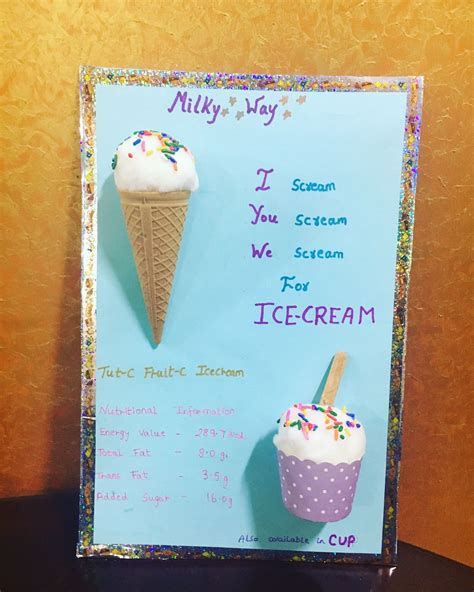 Milky Way
I Scream
You Scream
We Scream
For
ICE-CREAM
Tut-C Fruit-C Icecream
Nutritional Information
Energy Value - 289.7
Total Fat - 8.0 g
Trans Fat - 3.5 g
Added Sugar - 16.0 g
Also available in CUP